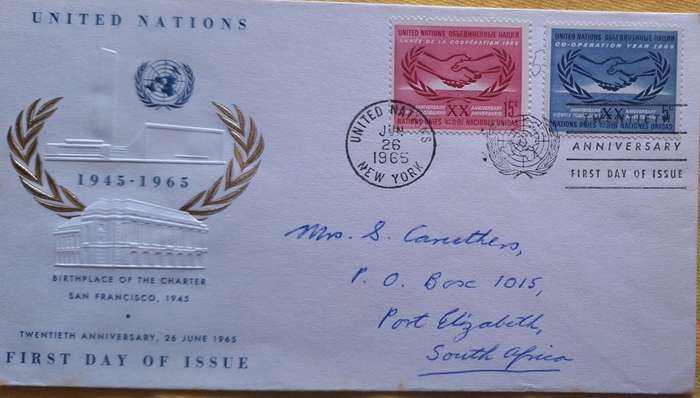 UNITED NATIONS
1945-1965
BIRTHPLACE OF THE CHARTER
SAN FRANCISCO, 1945
TWENTIETH ANNIVERSARY, 26 JUNE 1965
FIRST DAY OF ISSUE
UNITED NATIONS ОБЪЕДИНЕННЫЕ НАЦИИ
ANNÉE DE LA COOPÉRATION 1965
XX
ANNIVERSAIRE
ANNIVERSARY
ANIVERSARIO
15c
NATIONS UNIES
NACIONES UNIDAS
UNITED NATIONS ОБЪЕДИНЕННЫЕ НАЦИИ
CO-OPERATION YEAR 1965
XX
ANNIVERSAIRE
ANNIVERSARY
5c
NATIONS UNIES
NACIONES UNIDAS
UNITED NATIONS
JUN
26
1965
NEW YORK
ANNIVERSARY
FIRST DAY OF ISSUE
Mrs. S. Caruthers,
P. O. Box 1015,
Port Elizabeth,
South Africa